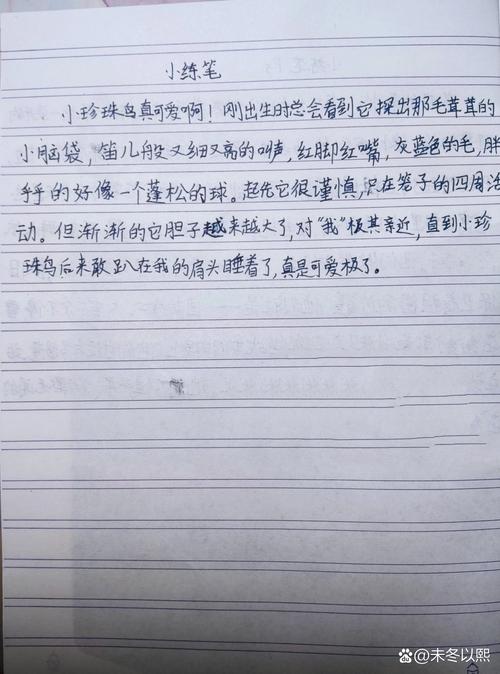 小练笔
小珍珠鸟真可爱啊！刚出生时总会看到它探出那毛茸茸的
小脑袋，笛儿般又细又亮的叫声，红脚红嘴，灰蓝色的毛，胖
乎乎的好像一个蓬松的球。起先它很谨慎，只在笼子的四周活
动。但渐渐的它胆子越来越大了，对“我”极其亲近，直到小珍
珠鸟后来敢趴在我的肩头睡着了，真是可爱极了。
未冬以熙